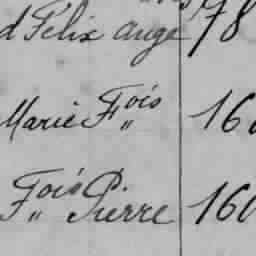 d Félix Ange 78
Marie F„ois 16
F„ois Pierre 160